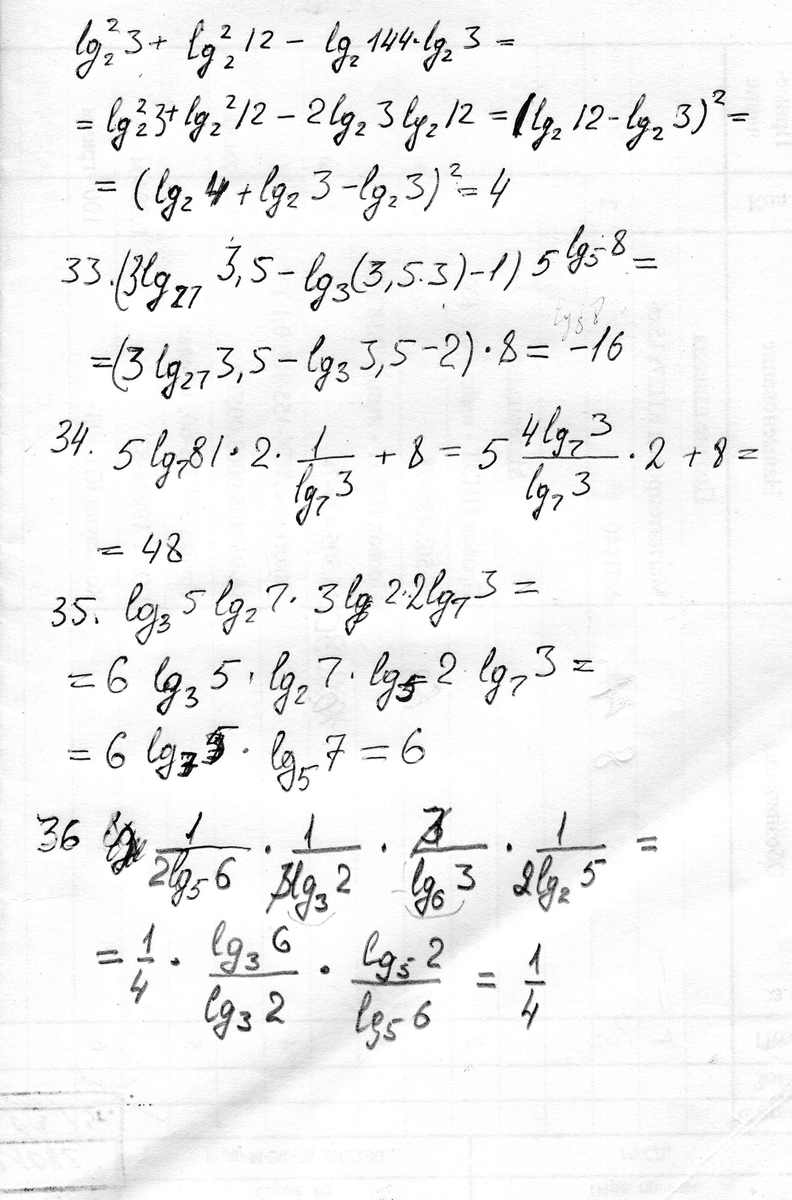 lg₂²3 + lg₂²12 − lg₂144·lg₂3 =
= lg₂²3 + lg₂²12 − 2lg₂3 lg₂12 = (lg₂12 − lg₂3)² =
= (lg₂4 + lg₂3 − lg₂3)² = 4
33. (3lg₂₇ 3,5 − lg₃(3,5·3) − 1) 5^(lg₅8) =
= (3 lg₂₇3,5 − lg₃3,5 − 2)·8 = −16
34. 5 lg₇81 · 2 · 1/(lg₇3) + 8 = 5 (4lg₇3)/(lg₇3) · 2 + 8 =
= 48
35. lg₃5 lg₂7 · 3lg 2·2lg₇3 =
= 6 lg₃5 · lg₂7 · lg₅2 lg₇3 =
= 6 lg₇5 · lg₅7 = 6
36 1/(2lg₅6) · 1/(3lg₃2) · 3/(lg₆3) · 1/(2lg₂5) =
= 1/4 · (lg₃6)/(lg₃2) · (lg₅2)/(lg₅6) = 1/4